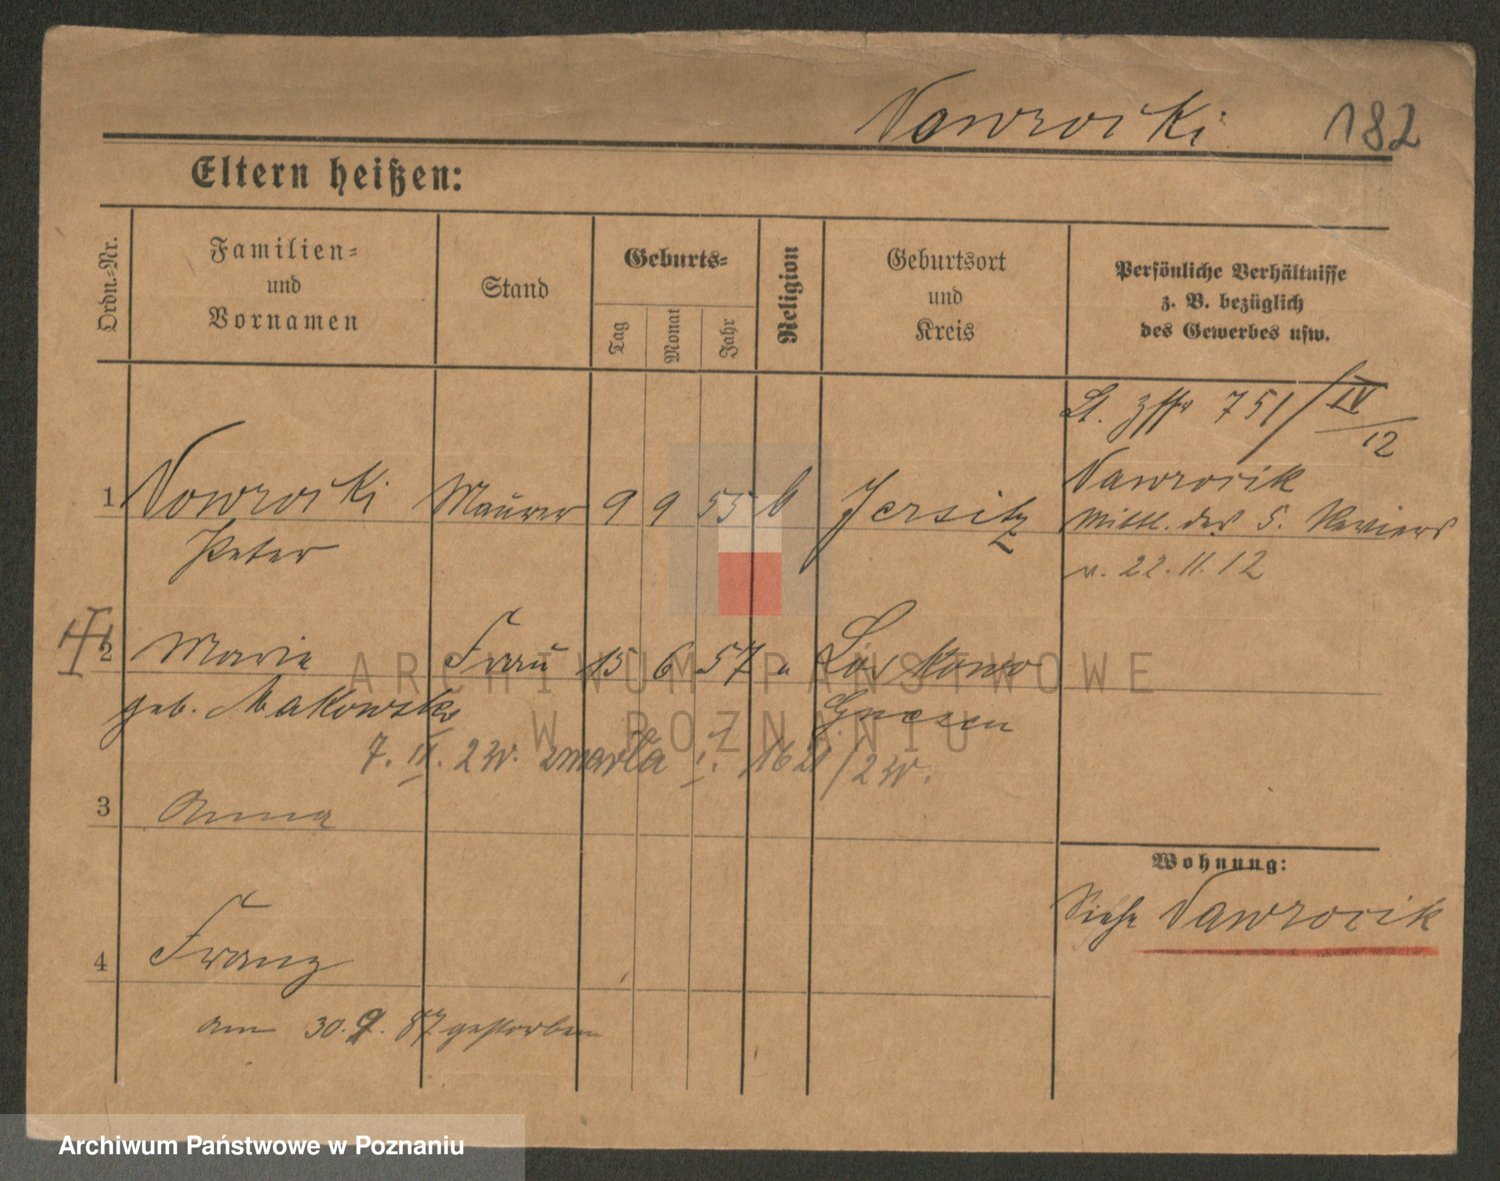 Nawrocki 182
Eltern heißen:
Ordn.-Nr.
Familien-
und
Vornamen
Stand
Geburts-
Tag
Monat
Jahr
Religion
Geburtsort
und
Kreis
Persönliche Verhältnisse
z. B. bezüglich
des Gewerbes usw.
St. 751/IV/12
1 Nowrocki Maurer 9 9 55 Jersitz
Peter
Nawrocik
Mittl. des 5. Reviers
v. 22.11.12
2 Maria Frau 15 6 57 Loskowo
geb. Makowska Gnesen
zmarła
3 Anna
Wohnung:
Siehe Nawrocik
4 Franz
am 30.9.87 gestorben
ARCHIWUM PAŃSTWOWE
W POZNANIU
Archiwum Państwowe w Poznaniu